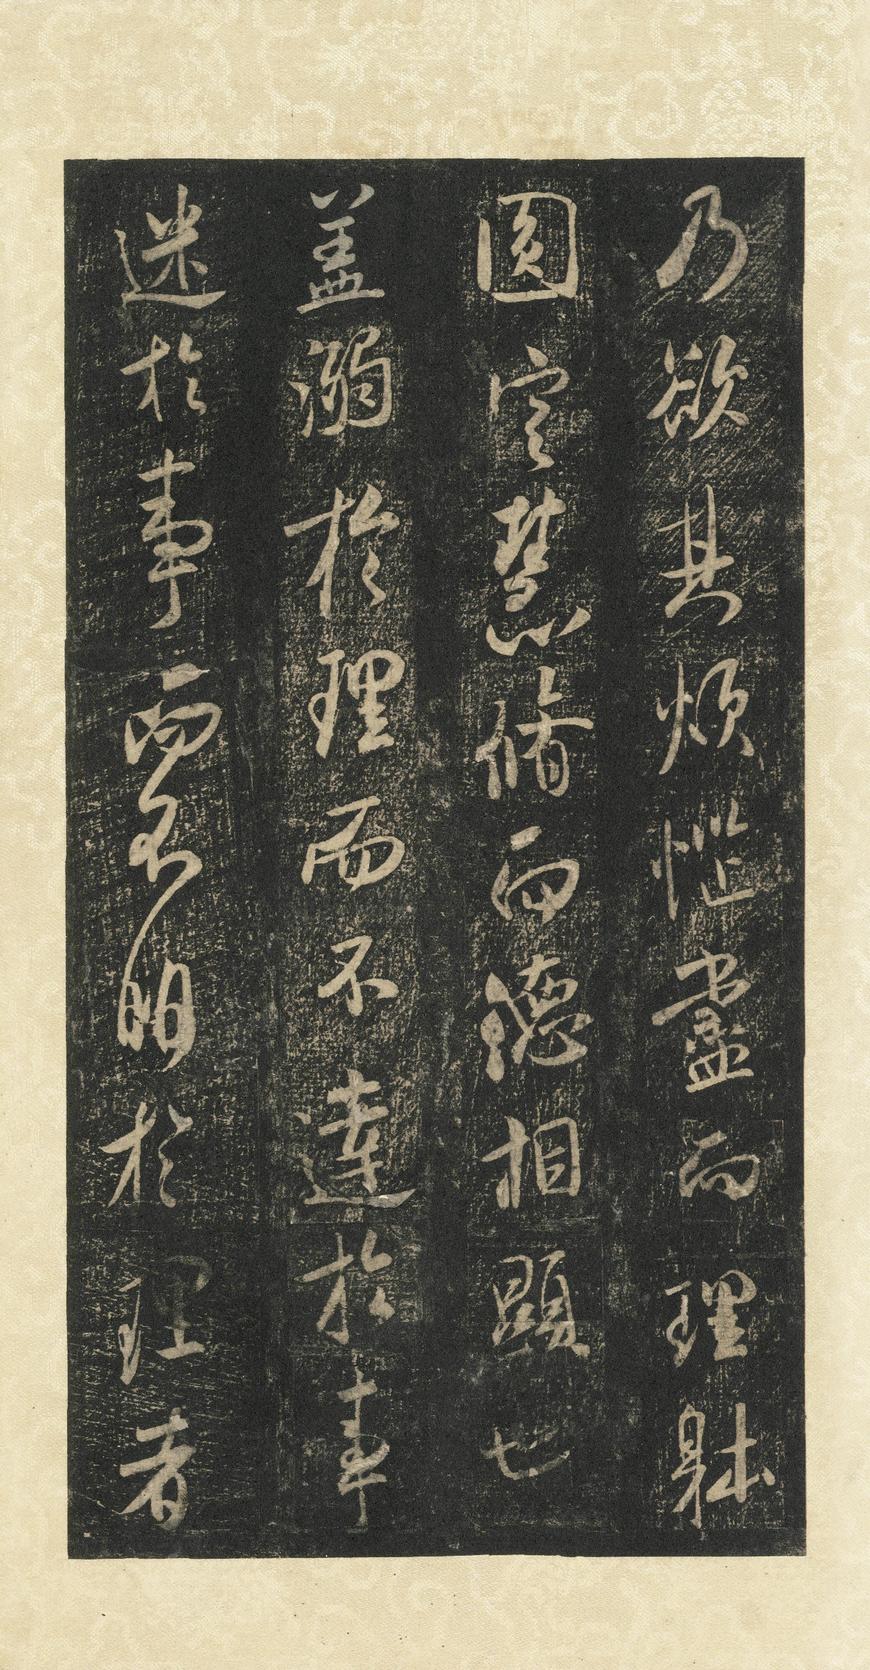 乃欲其煩惱盡而理躰
圓定慧脩而德相顯也
盖溺於理而不達於事
迷於事而不明於理者